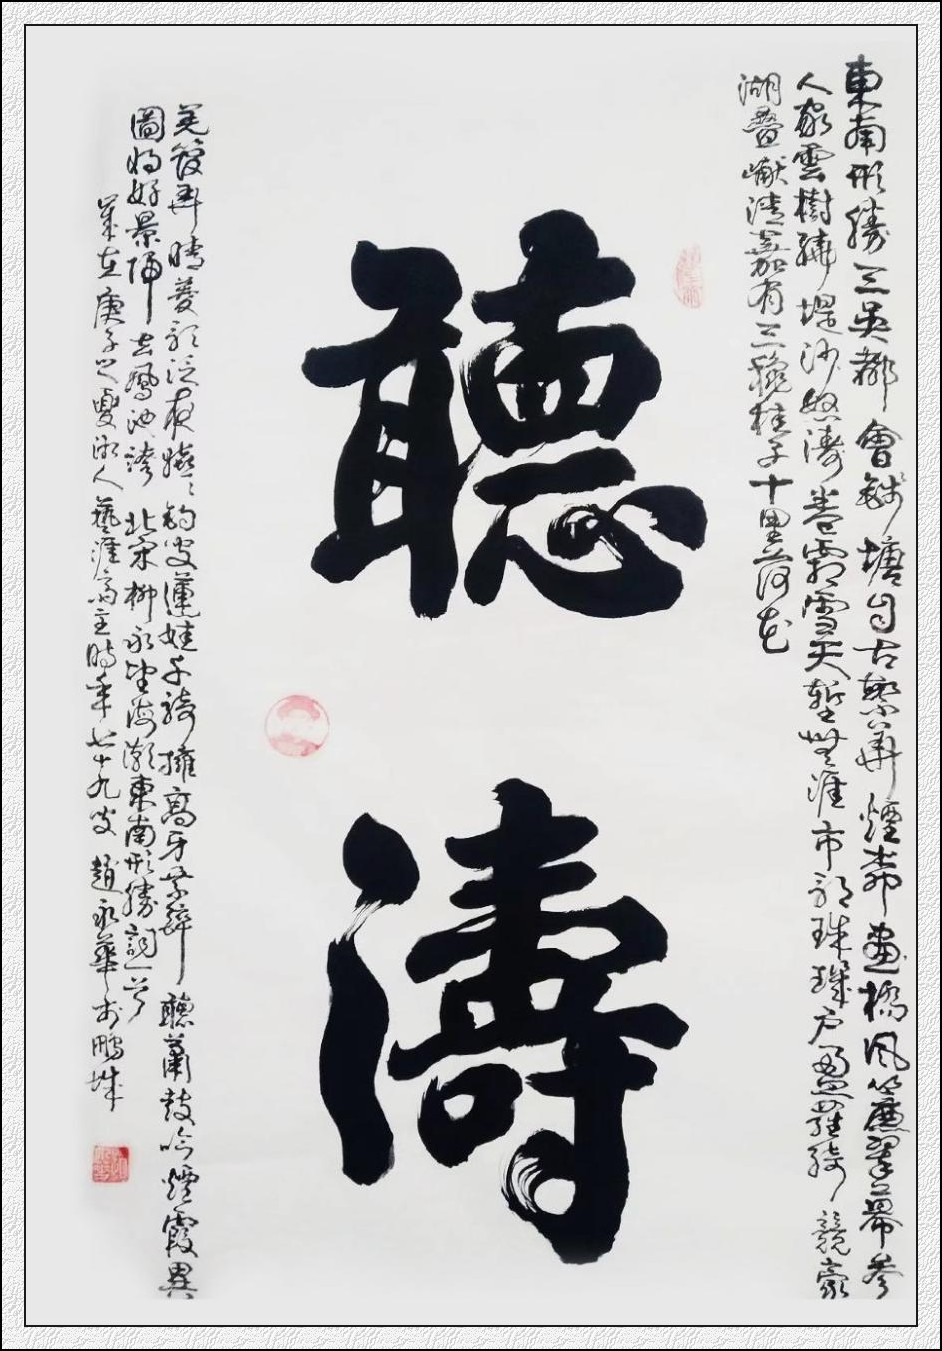 東南形勝三吳都會錢塘自古繁華煙柳畫橋風簾翠幕參
人家雲樹繞堤沙怒濤卷霜雪天塹無涯市列珠璣戶盈羅綺競豪
湖疊巘清嘉有三秋桂子十里荷花
聽濤
羌管弄晴菱歌泛夜嬉〻釣叟蓮娃千騎擁高牙乘醉聽簫鼓吟煙霞異
圖將好景歸去鳳池誇 北宋柳永望海潮東南形勝詞一首
歲在庚子之夏湖人藝涯齋主時年七十九叟趙永華於鵬城